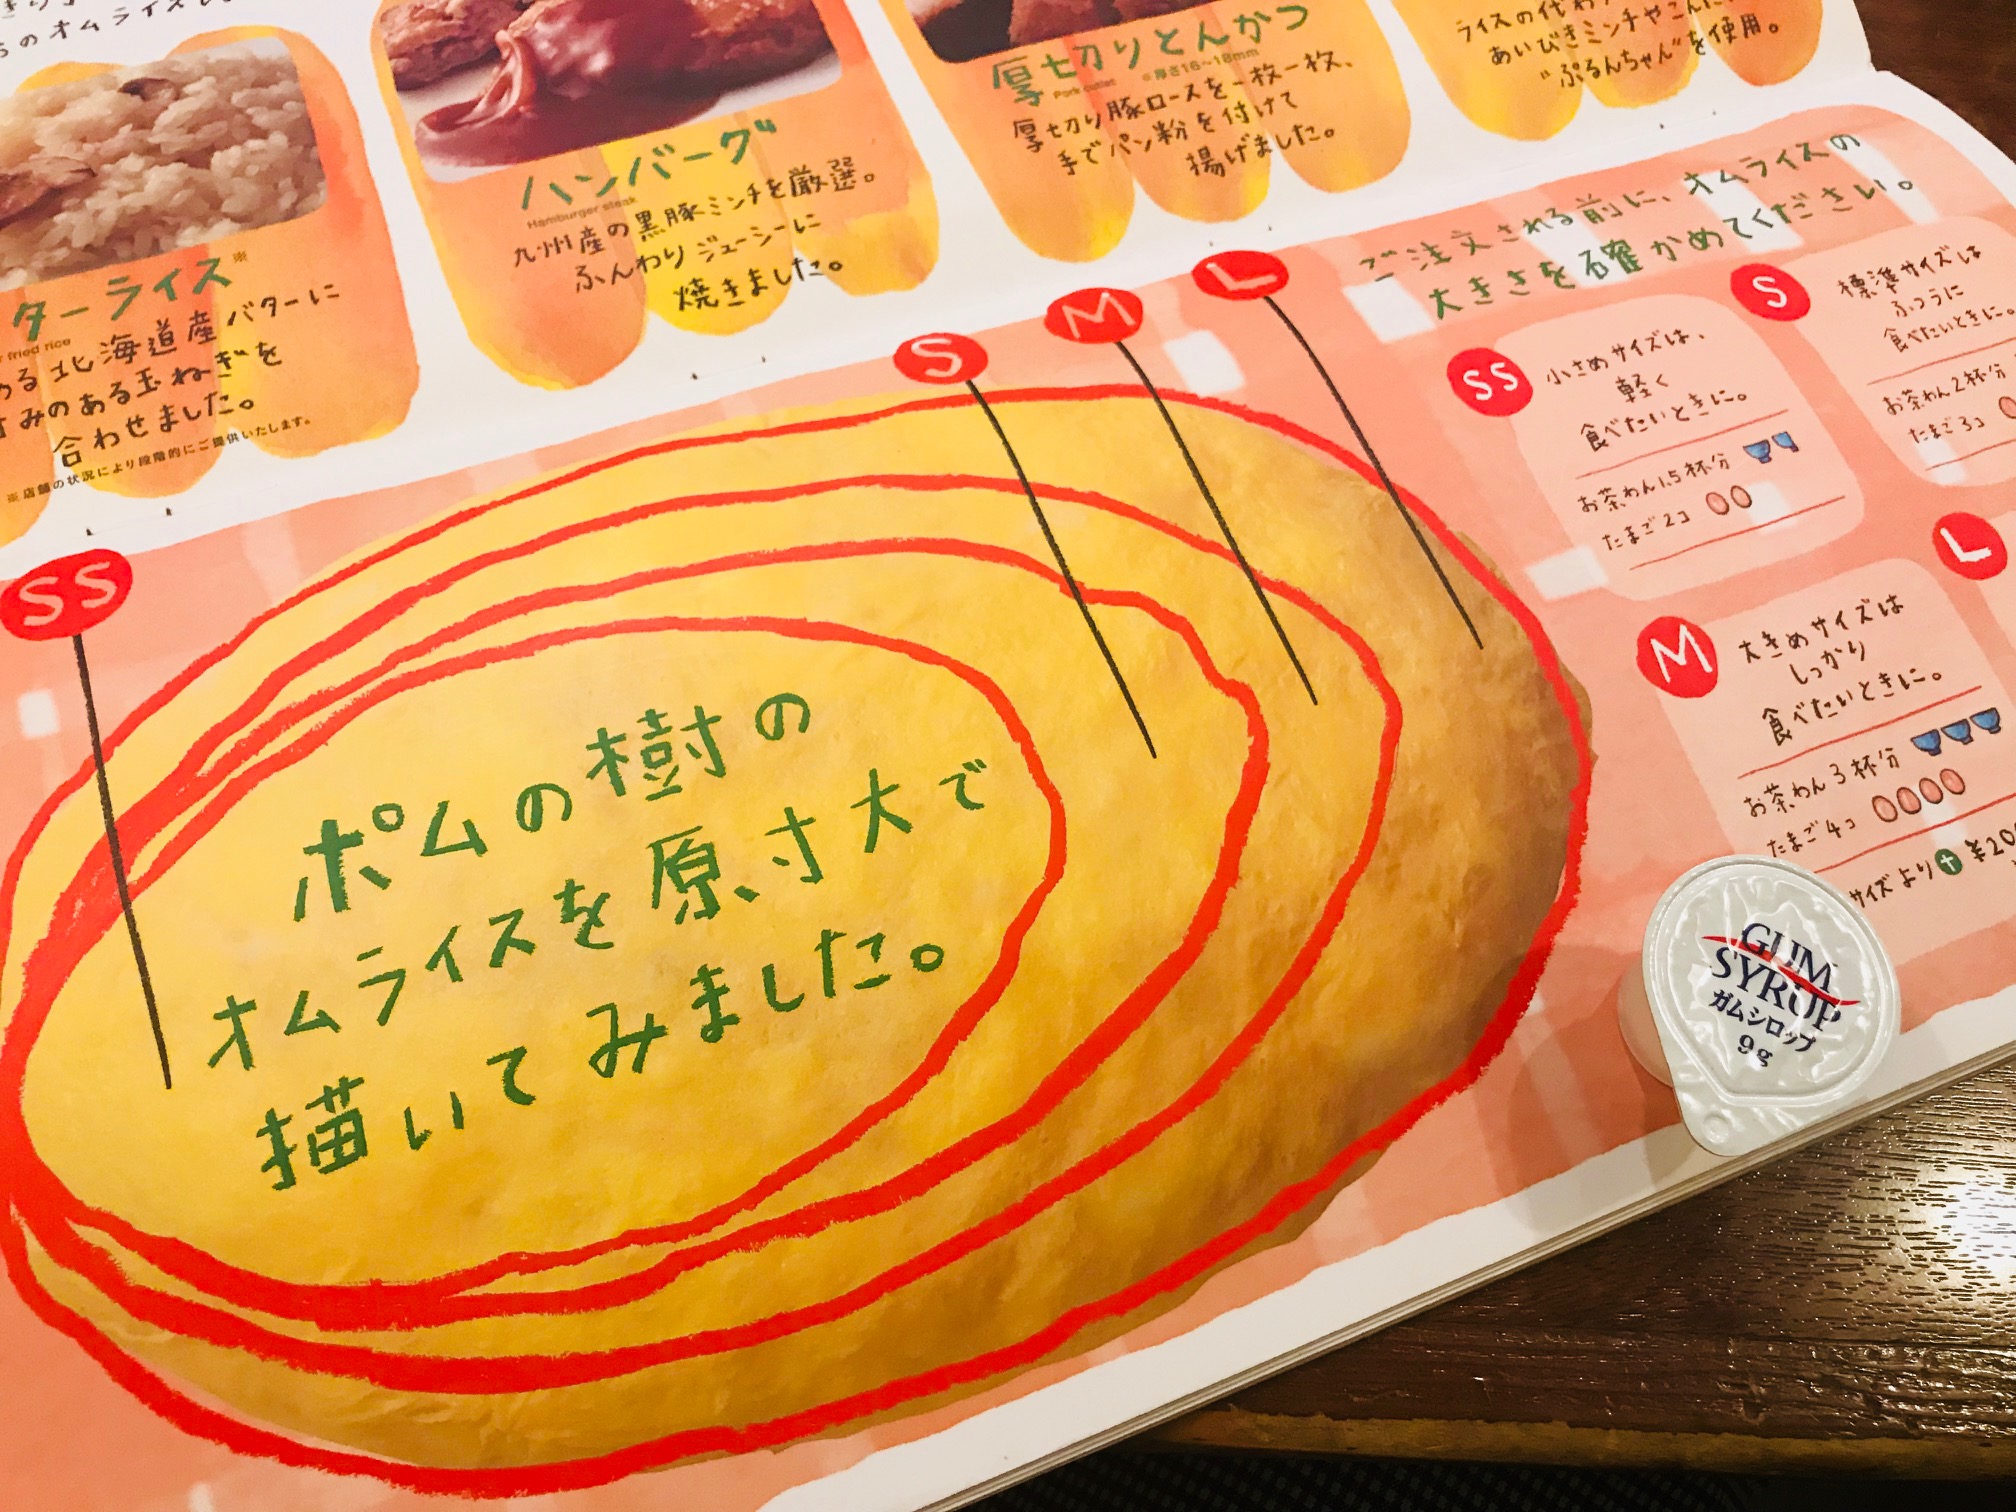 らのオムライス
ターライス※
fried rice
北海道産バターに
のある玉ねぎを
合わせました。
※店舗の状況により段階的にご提供いたします。
ハンバーグ
Hamburger steak
九州産の黒豚ミンチを厳選。
ふんわりジューシーに
焼きました。
厚切りとんかつ
Pork cutlet
※厚さ16~18mm
厚切り豚ロースを一枚一枚、
手でパン粉を付けて
揚げました。
ライスの代わ
あいびきミンチやこん
"ぷるんちゃん"を使用。
SS
S
M
L
ポムの樹の
オムライスを原寸大で
描いてみました。
ご注文される前に、オムライスの
大きさを確かめてください。
SS
小さめサイズは、
軽く
食べたいときに。
お茶わん1.5杯分
たまご2コ
S
標準サイズは
ふつうに
食べたいときに。
お茶わん2杯分
たまご3コ
M
大きめサイズは
しっかり
食べたいときに。
お茶わん3杯分
たまご4コ
サイズより+¥20
L
GUM
SYRUP
ガムシロップ
9g